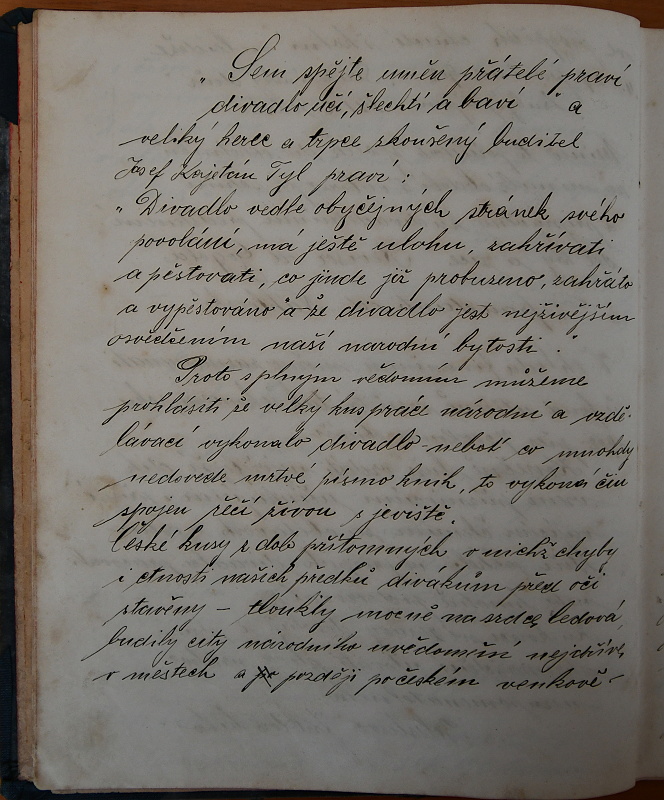 „ Sem spějte uměn přátelé praví
divadlo učí, šlechtí a baví " a
veliký herec a trpce zkoušený buditel
Josef Kajetán Tyl praví :
„ Divadlo vedle obyčejných stránek svého
povolání, má ještě ulohu, zahřívati
a pěstovati, co jinde již probuzeno, zahřáto
a vypěstováno " a že divadlo jest nejživějším
osvědčením naší narodní bytosti . "
Proto s plným vědomím můžeme
prohlásiti že velký kus práce národní a vzdě-
lávací vykonalo divadlo - neboť co mnohdy
nedovede mrtvé písmo knih, to vykoná čin
spojen řečí živou s jeviště.
České kusy z dob přítomných v nichž chyby
i ctnosti našich předků divákům před oči
stavěny – tloukly mocně na srdce ledová,
budily city národního uvědomění nejdříve
v městech a později po českém venkově -